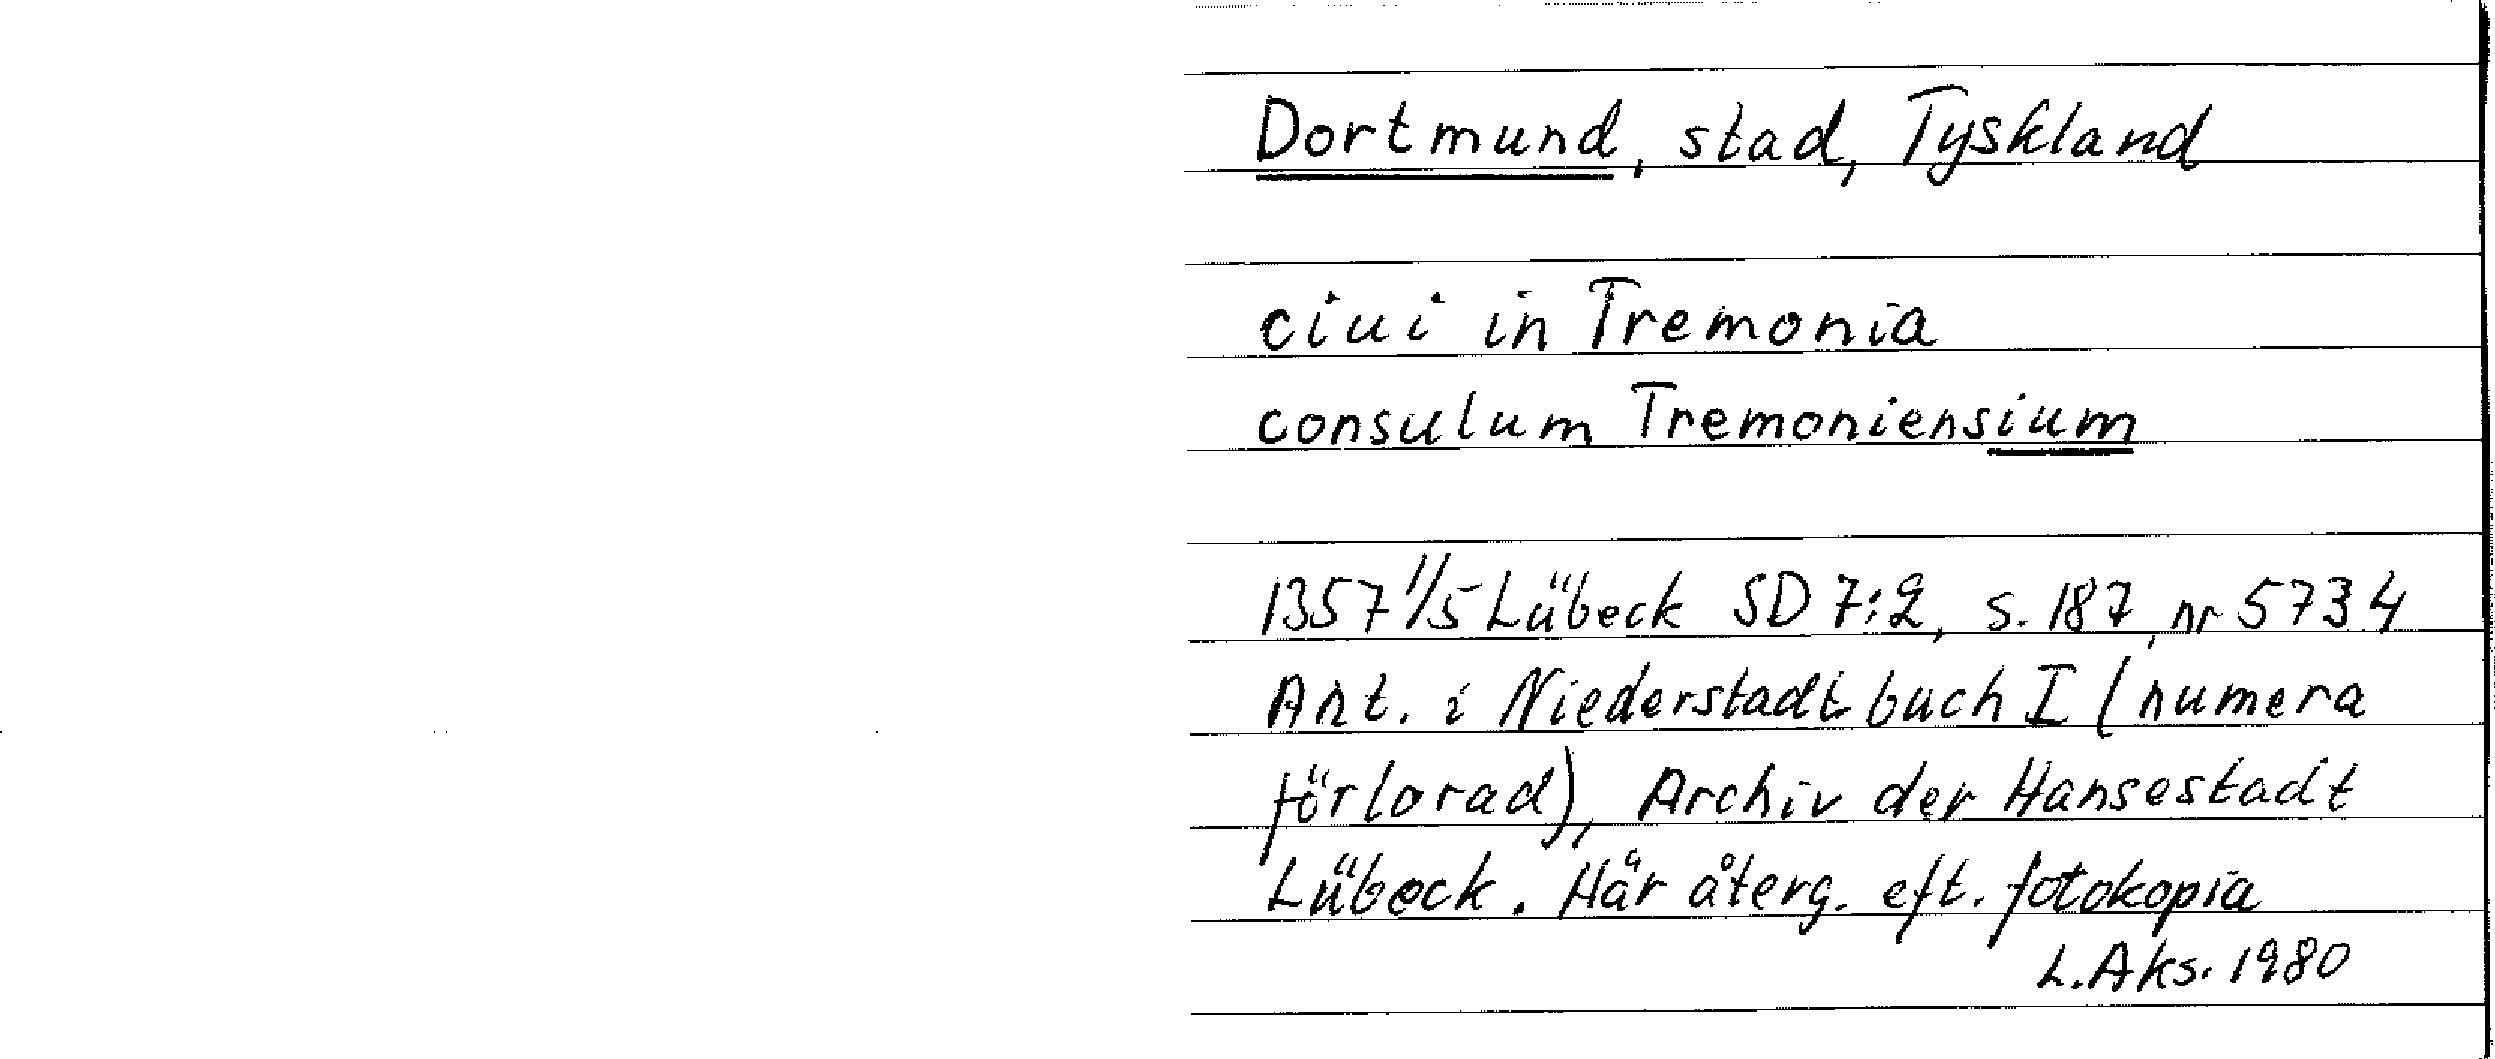 Dortmund, stad, Tyskland
ciui in Tremonia
consulum Tremoniensium
1357 1/5 Lübeck SD 7:2, s. 187, nr 5734
Ant. i Niederstadtbuch I (numera
förlorad), Archiv der Hansestadt
Lübeck. Här återg. eft. fotokopia
L.Aks. 1980